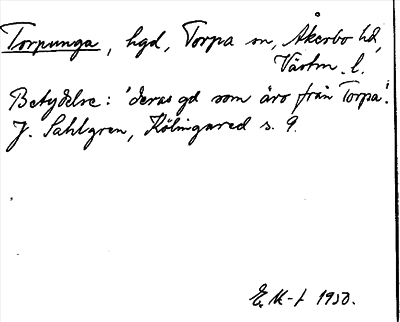 Torpunga, hgd, Torpa sn, Åkerbo hd,
Västm. l.
Betydelse: 'deras gd som äro från Torpa'.
J. Sahlgren, Kölingared s. 9.
E. M-t 1950.